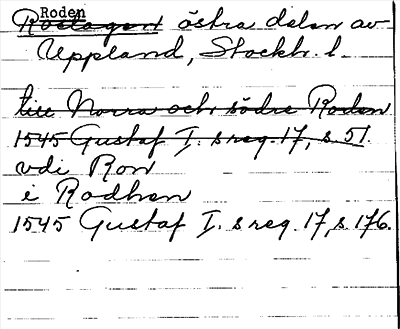 Roden
Roslagen östra delen av
Uppland, Stockh. l.
till Norra och södre Roden
1545 Gustaf I. s reg. 17, s 51.
vdi Ron
i Rodhen
1545 Gustaf I. s reg. 17, s. 176.